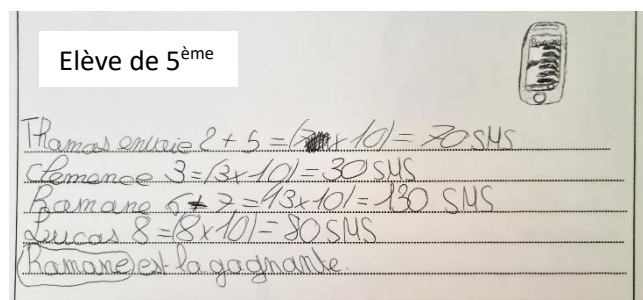 Elève de 5ème
Thomas envoie 2 + 5 = (7 x 10) = 70 SMS
Clemence 3 = (3 x 10) = 30 SMS
Romane 6 + 7 = (13 x 10) = 130 SMS
Lucas 8 = (8 x 10) = 80 SMS
Romane est la gagnante.